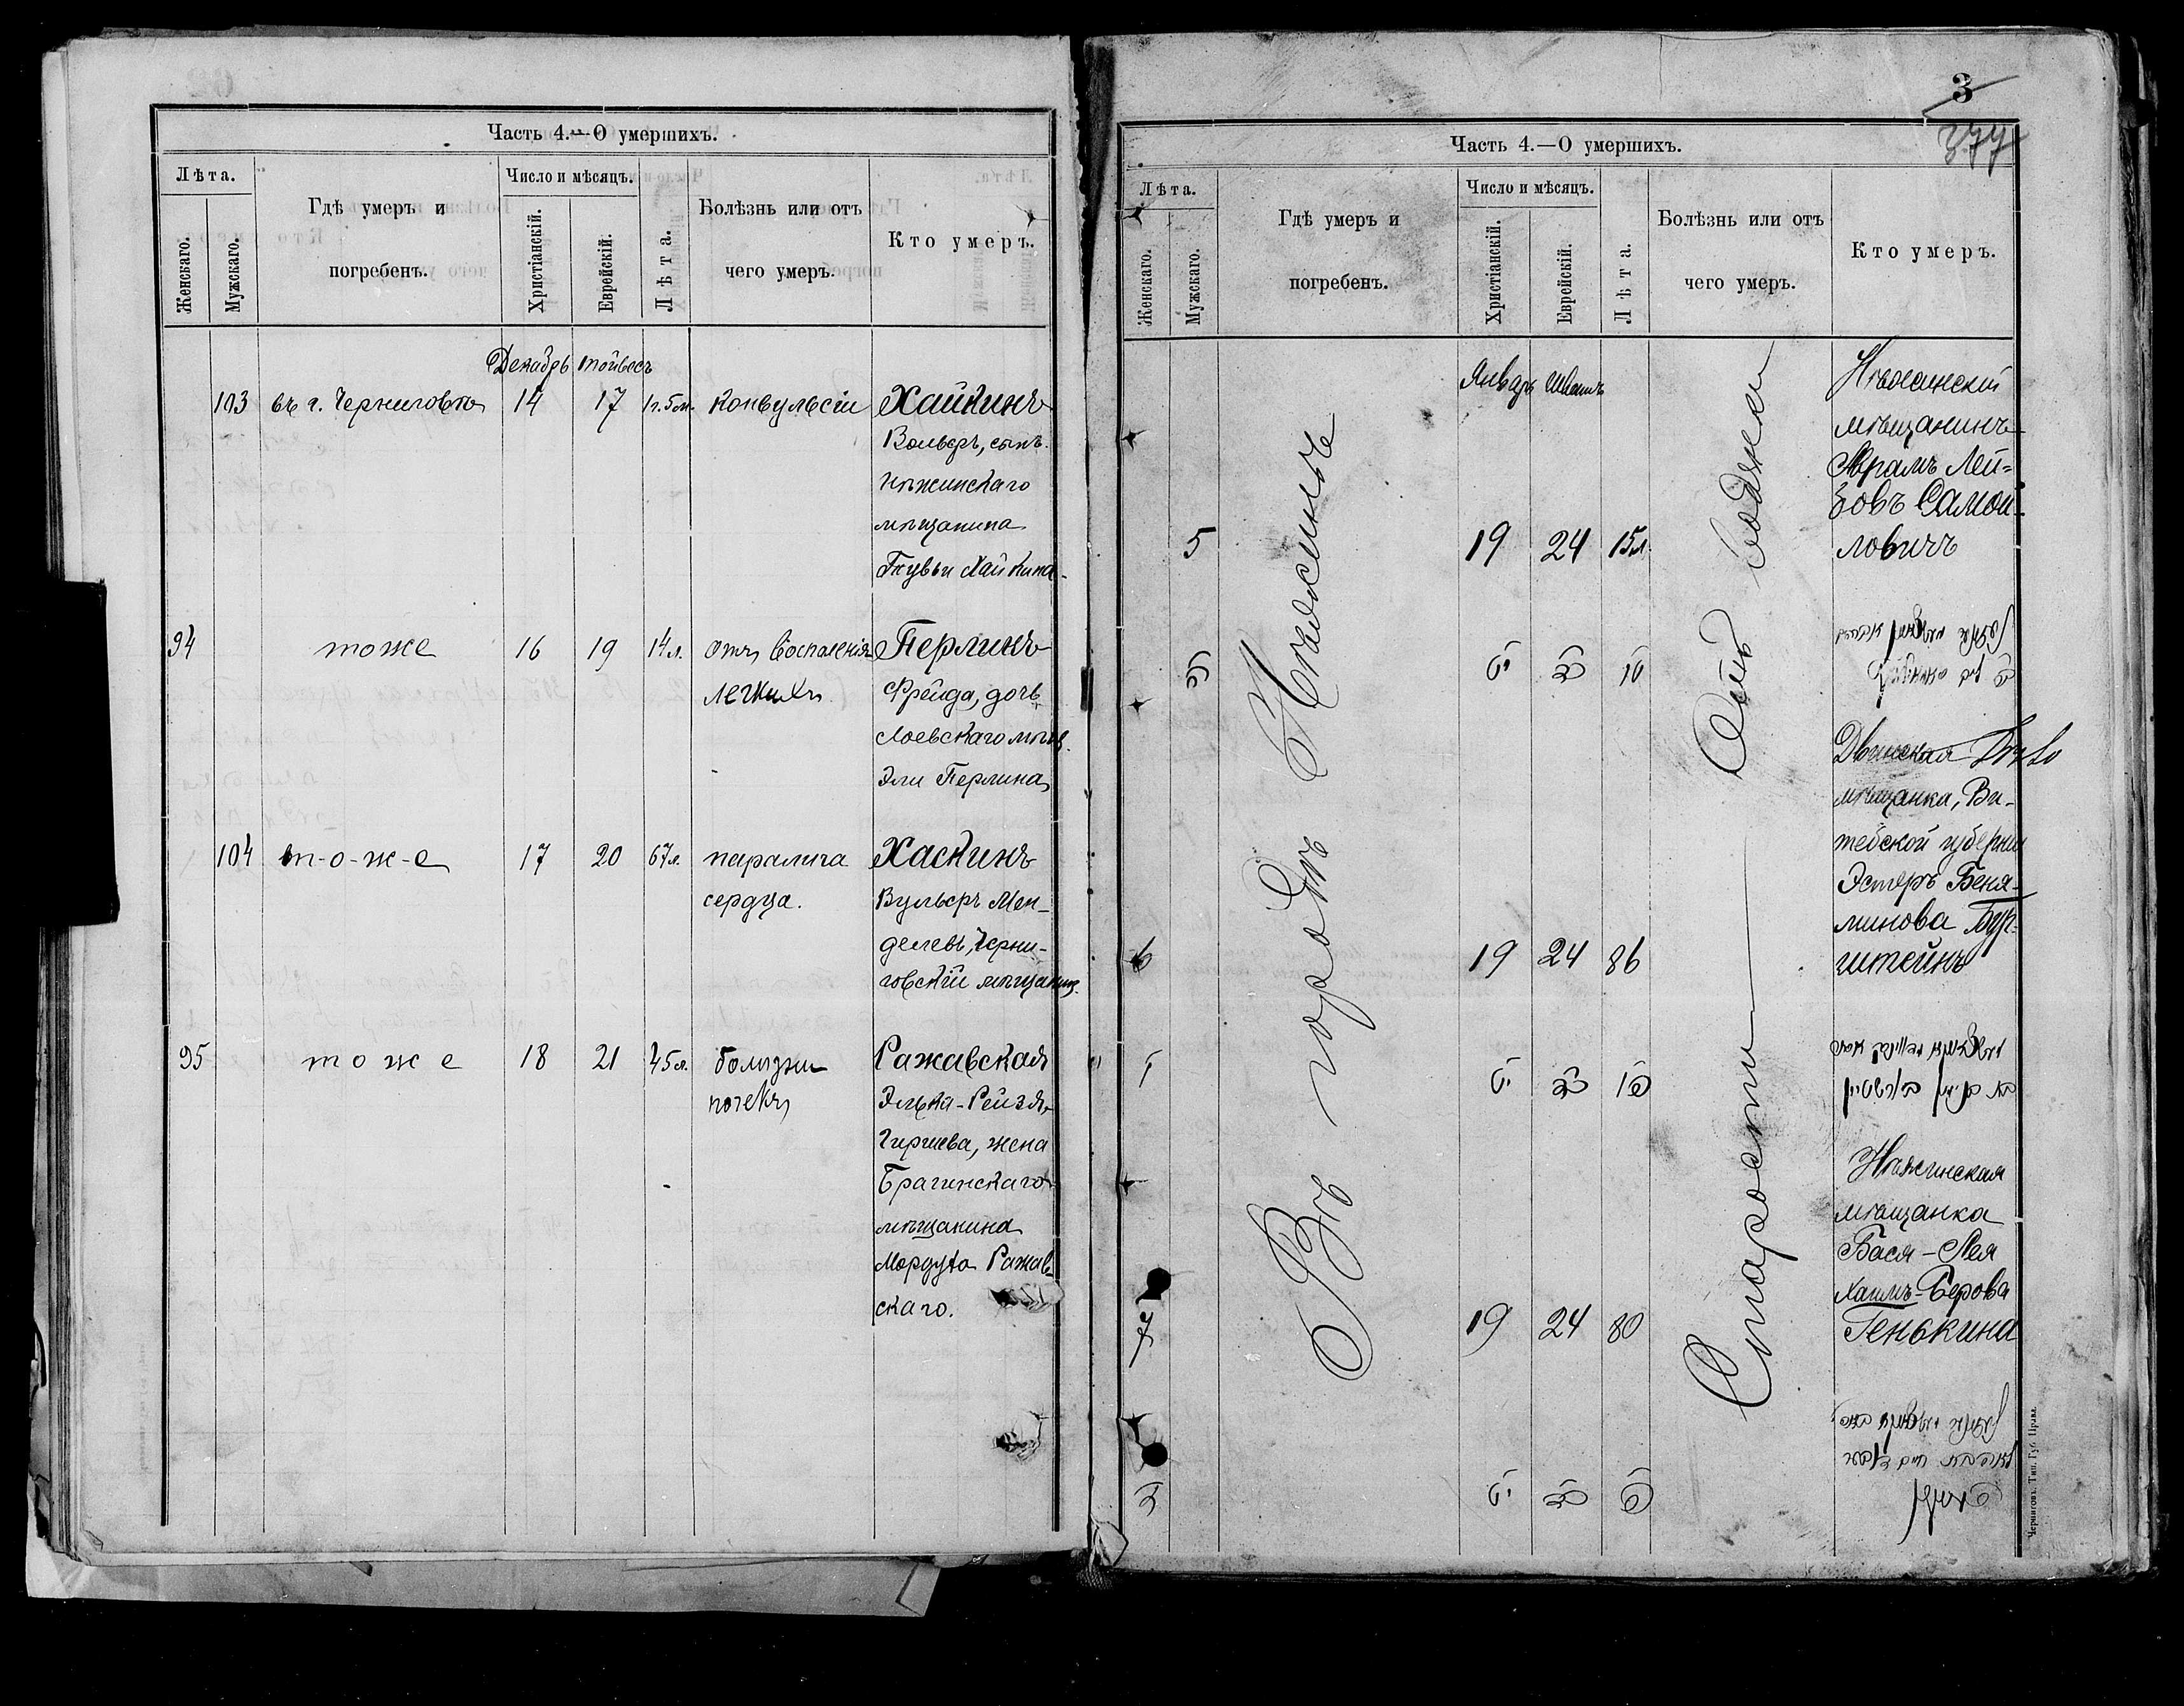 Часть 4.—О умершихъ.
Лѣта.
Женскаго.
Мужскаго.
Гдѣ умеръ и
погребенъ.
Число и мѣсяцъ.
Христіанскій.
Еврейскій.
Лѣта.
Болѣзнь или отъ
чего умеръ.
Кто умеръ.
Декабрь тойвесъ
103 въ г. Черниговѣ 14 17 1г.5м. конвульсіи Хайкинъ
Вольфъ, сынъ
Нѣжинскаго
мѣщанина
Хайкина
94 тоже 16 19 14л. отъ воспаленія Перлинъ
легкихъ Фрейда, дочь
Лоевскаго мѣщ.
Эли Перлина
104 т-о-ж-е 17 20 67л. паралича Хаскинъ
сердца. Вульфъ Мен-
делевъ, Черни-
говскій мѣщанинъ.
95 тоже 18 21 45л. болѣзни Ражавская
почекъ Элька-Рейзя
жена
Брагинскаго
мѣщанина
Мордуха Ражав-
скаго.
3
377
Часть 4.—О умершихъ.
Лѣта.
Женскаго.
Мужскаго.
Гдѣ умеръ и
погребенъ.
Число и мѣсяцъ.
Христіанскій.
Еврейскій.
Лѣта.
Болѣзнь или отъ
чего умеръ.
Кто умеръ.
Январь Шватъ
Въ городѣ Нѣжинѣ
Нѣжинскій
мѣщанинъ
Абрамъ Лей-
зовъ Самой-
5 19 24 15л. ловичъ
Отъ
Двинская
мѣщанка, Ви-
тебской губерніи
Эстеръ Беня-
минова Бур-
6 19 24 86 штейнъ
Старости
Нѣжинская
мѣщанка
Бася-Лея
Хаимъ-Берова
7 19 24 80 Генькина
Черниговъ. Тип. Губ. Правл.